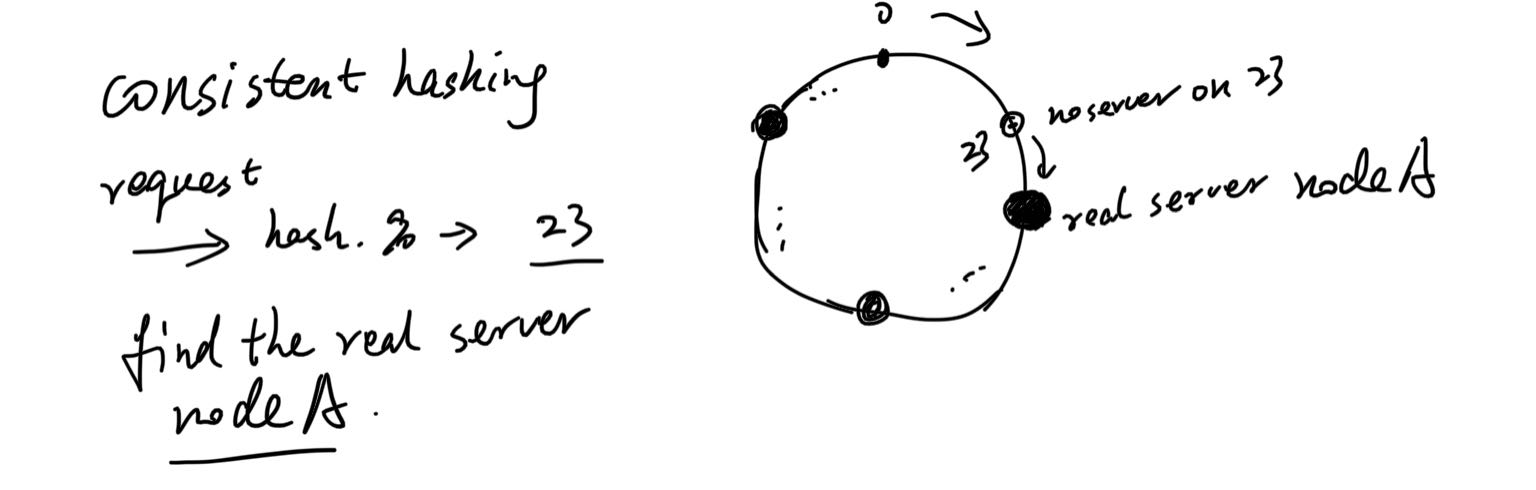 consistent hashing
request
→ hash. % → 23
find the real server
node A.
0
no server on 23
23
real server node A